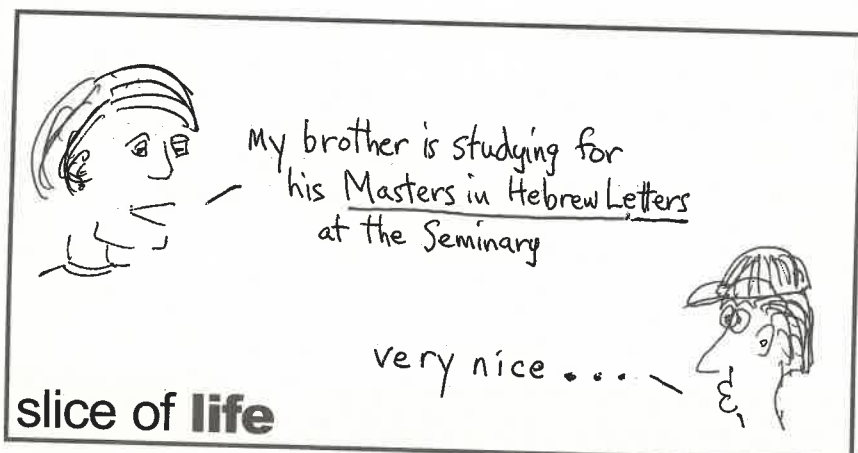 My brother is studying for
his Masters in Hebrew Letters
at the Seminary
very nice ....
slice of life